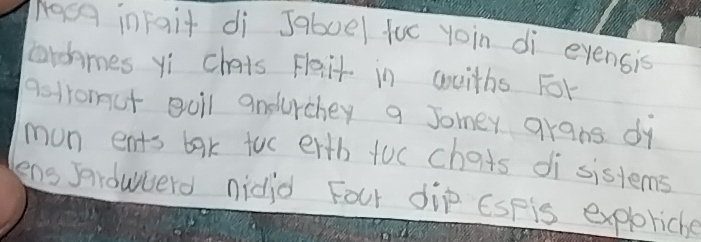 Nasa infait di Jabuel tuc yoin di eyensis
yi chats Flait in wuiths For
guil andurchey a Jomey grans di
mun ents bak tuc erth tuc chats di sistems
ens Jarduwerd nidid Four dip Espis exploriche